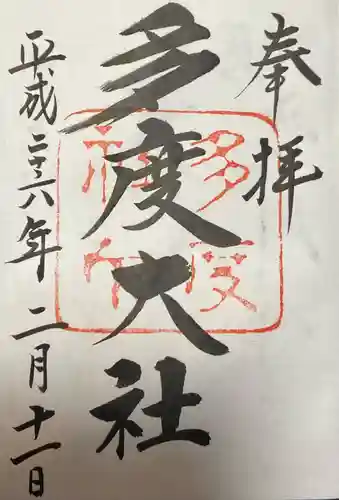 奉拝
多度大社
平成二十六年二月十一日
多度
神社